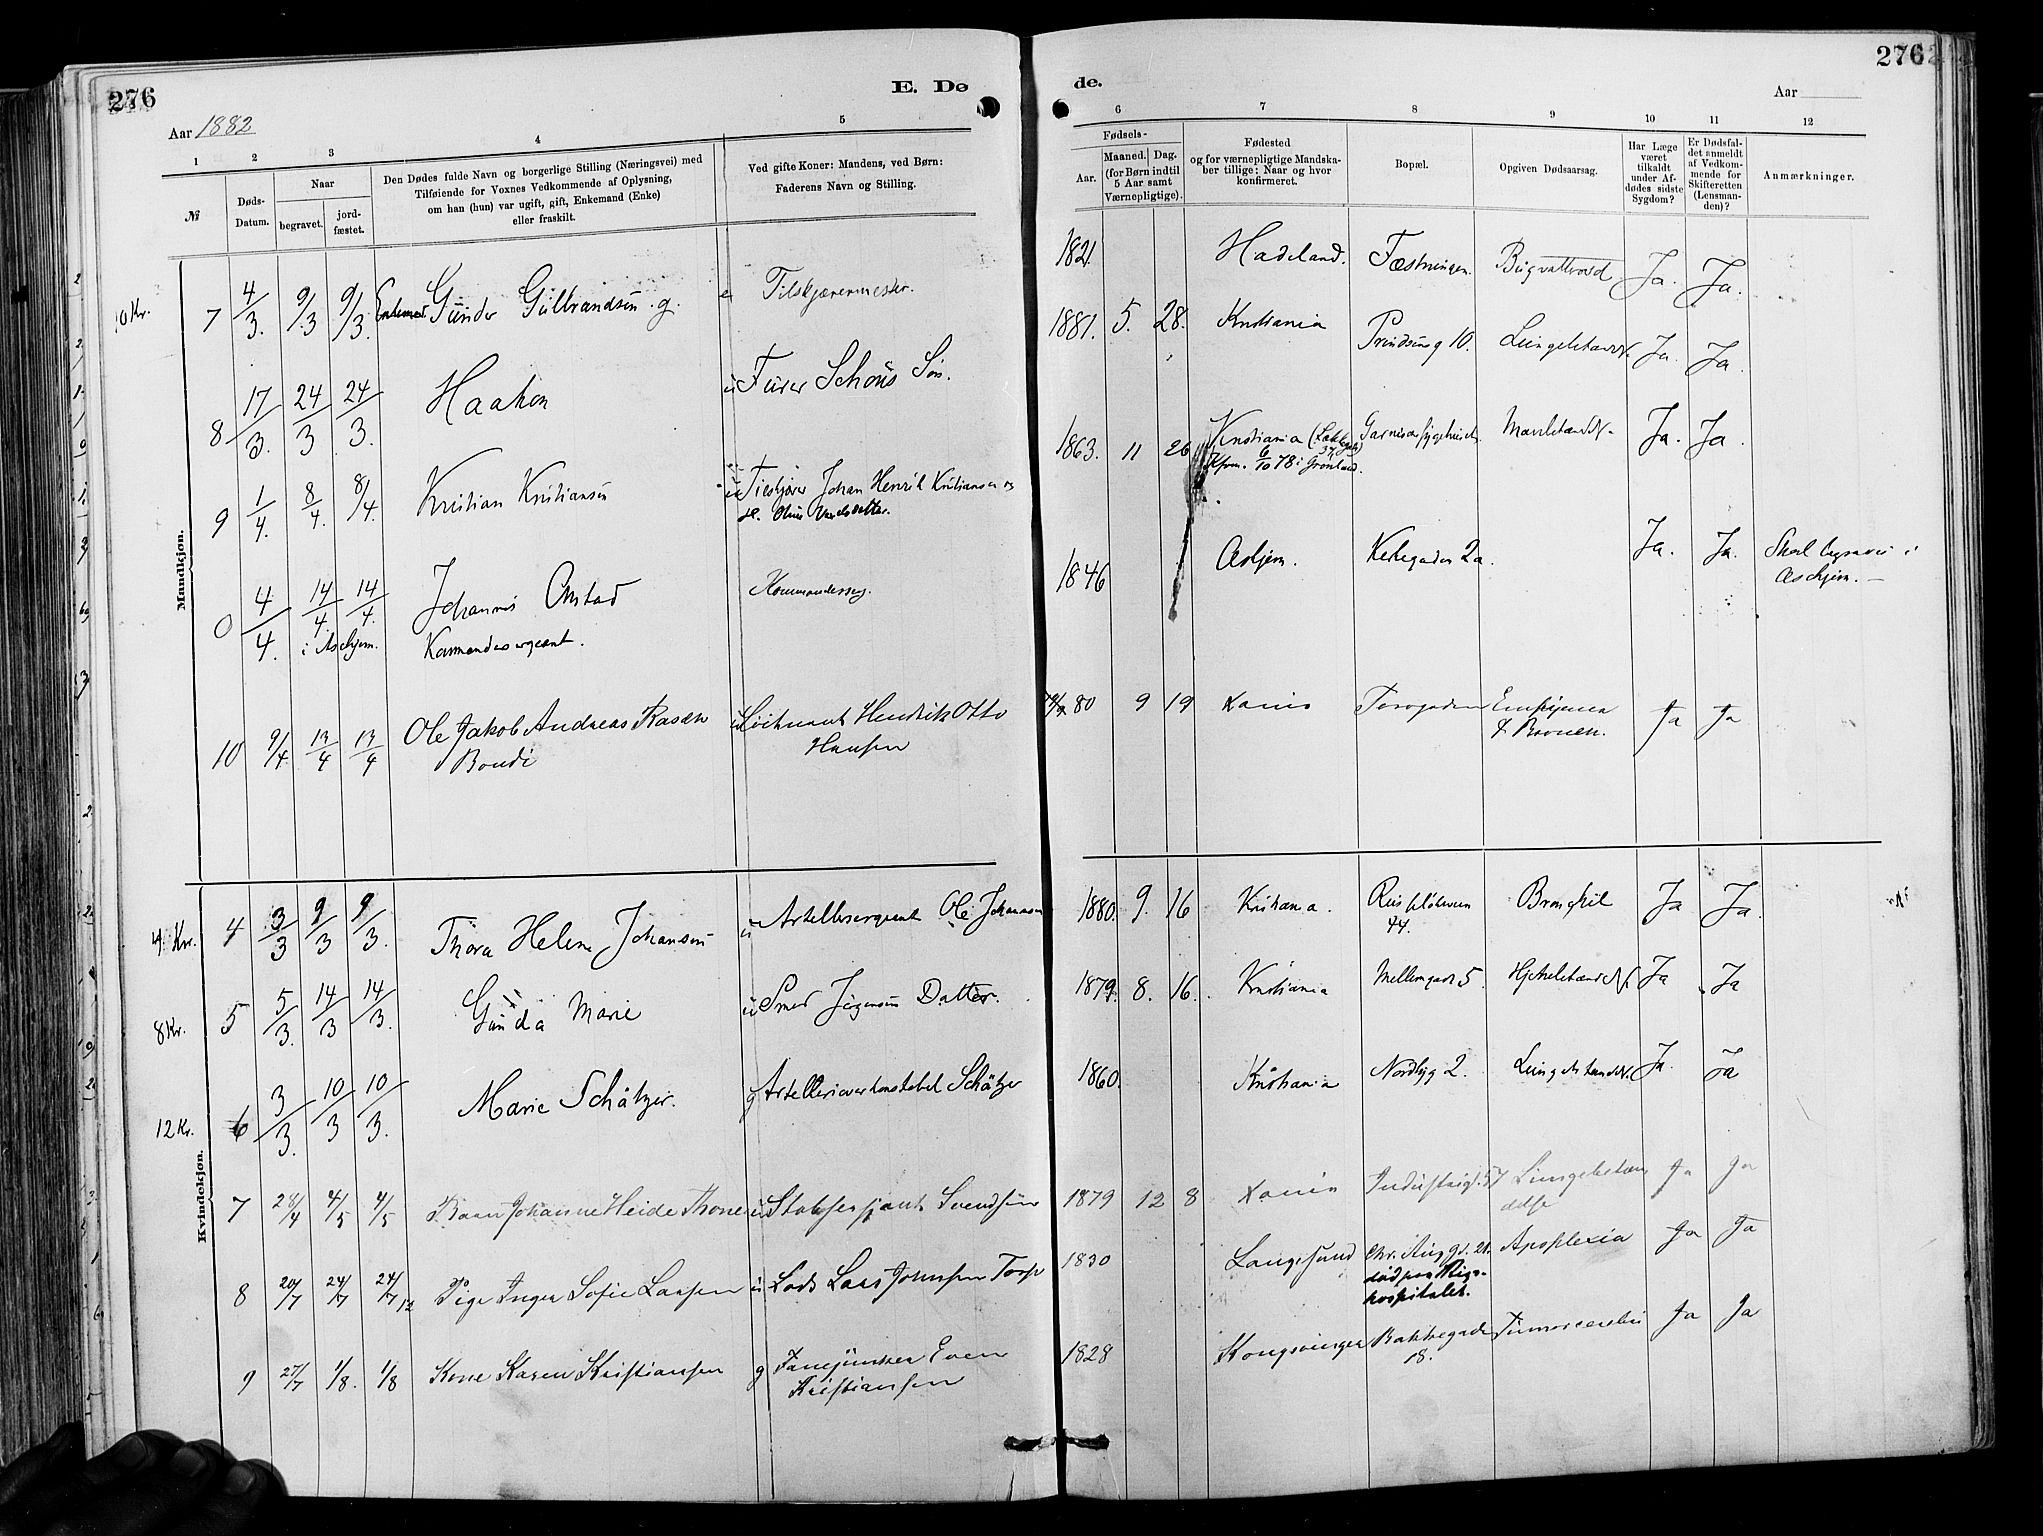 276
E. Dø
de.
276
Aar 1882
Aar
1 2 3 4 5 6 7 8 9 10 11 12
№
Døds-
Datum.
Naar
begravet.
jord-
fæstet.
Den Dødes fulde Navn og borgerlige Stilling (Næringsvei) med
Tilføiende for Voxnes Vedkommende af Oplysning,
om han (hun) var ugift, gift, Enkemand (Enke)
eller fraskilt.
Ved gifte Koner: Mandens, ved Børn:
Faderens Navn og Stilling.
Fødsels-
Aar.
Maaned. Dag.
(for Børn indtil
5 Aar samt
Værnepligtige).
Fødested
og for værnepligtige Mandska-
ber tillige: Naar og hvor
konfirmeret.
Bopæl.
Opgiven Dødsaarsag.
Har Læge
været
tilkaldt
under Af-
dødes sidste
Sygdom?
Er Dødsfal-
det anmeldt
af Vedkom-
mende for
Skifteretten
(Lensman-
den)?
Anmærkninger.
Mandkjøn.
10 Kr. 7 4/3. 9/3 9/3. Gunder Gulbrandsen g. 1821. Hadeland. Fæstningen. Ja. Ja.
8 17/3. 24/3 24/3. Haakon u Furer Schous Søn. 1881. 5. 28. Kristiania Prindsensg 10. Lungebetændels. Ja. Ja.
9 1/4. 8/4. 8/4. Kristian Kristiansen u Johan Henrik Kristiansen og 1863. 11 26 Kristiania Garnisonssygehuset. Ja. Ja.
Kfrm. 6/10 78 i Grønland.
4/4. 14/4. 14/4. Johannes Onstad Kommandersg. 1846 Askjem. Kirkegaden 2a. Ja. Ja. Skal begraves i
i Askjem. Kommandersergeant. Askjem.
10 9/4 13/4 13/4 Ole Jakob Andreas Rasch u Løitnant Hendrik Otto 80 9 19 Xania Ja Ja
Hansen
Kvindekjøn.
4 Kr. 4 3/3 9/3 9/3. Thora Helene Johansen u Artillerisergeant Ole Johansen 1880. 9. 16 Kristiania. Ja Ja.
44.
8 Kr. 5 5/3. 14/3 14/3. Gunda Marie u Smed Jørgensens Datter. 1879. 8. 16. Kristiania Mellemgade 5. Ja Ja
12 Kr. 6 3/3. 10/3 10/3. Marie Schätzer. g Artillerioverkonstabel Schätzer 1860. Kristiania Nordbyg 2. Ja. Ja
7 28/4 4/5 4/5 Barn Johanne Heide Thone u Stabssersjant Svendsen 1879 12 8 Xania Industrig. 57 Lungebetæn Ja Ja
delse
8 20/7 24/7 24/7 12 Pige Inger Sofie Larsen u Lods Lars Johnsen Torp 1830 Langesund Chr. Aug gd. 21. Apoplexia Ja Ja
død paa Rigs-
hospitalet.
9 27/7 1/8. 1/8 Kone Karen Kristiansen g Fanejunker Even 1828 Kongsvinger Bakkegade Tumor cerebri Ja Ja
Kristiansen 18.